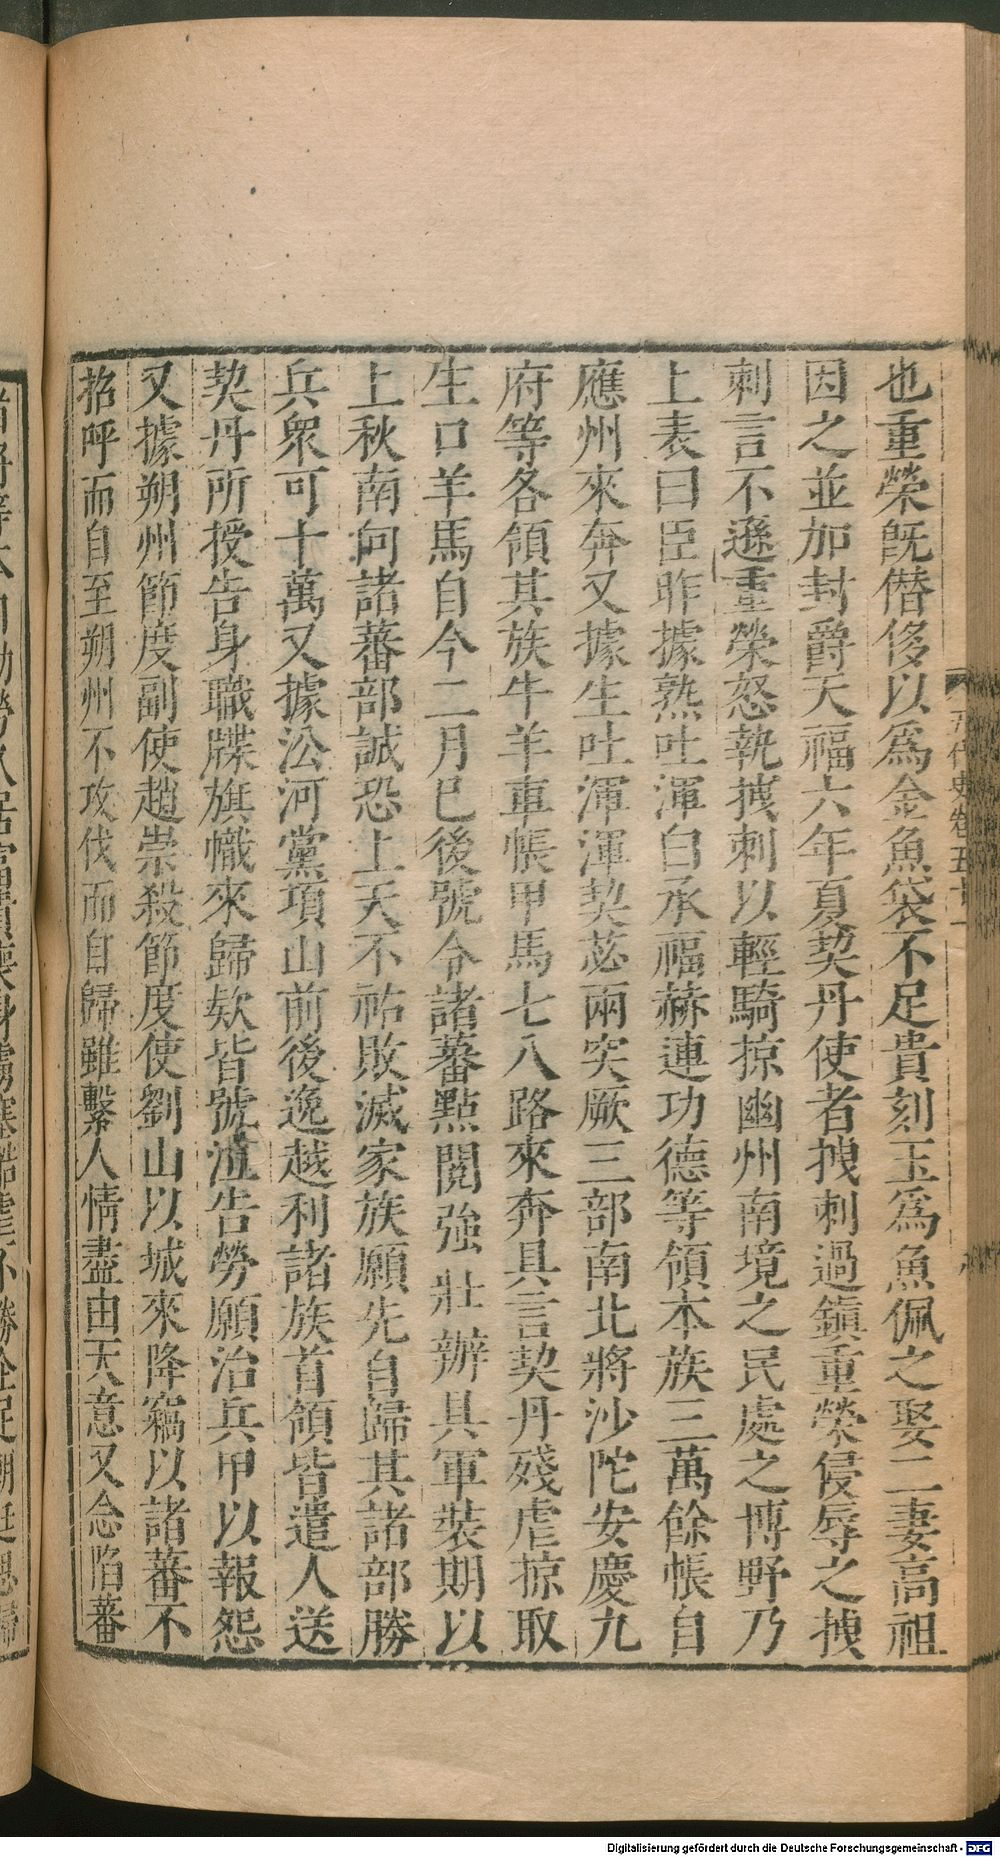 也重榮既僭侈以爲金魚袋不足貴刻玉爲魚佩之娶二妻高祖
因之並加封爵天福六年夏契丹使者拽刺過鎭重榮侵辱之拽
刺言不遜重榮怒執拽刺以輕騎掠幽州南境之民處之博野乃
上表曰臣昨據熟吐渾白承福赫連功德等領本族三萬餘帳自
應州來奔又據生吐渾渾契苾兩突厥三部南北將沙陀安慶九
府等各領其族牛羊車帳甲馬七八路來奔具言契丹殘虐掠取
生口羊馬自今二月已後號令諸蕃點閱強壯辦具軍裝期以
上秋南向諸蕃部誠恐上天不祐敗滅家族願先自歸其諸部勝
兵衆可十萬又據沿河黨項山前後逸越利諸族首領皆遣人送
契丹所授告身職牒旗幟來歸欵皆號泣告勞願治兵甲以報怨
又據朔州節度副使趙崇殺節度使劉山以城來降竊以諸蕃不
招呼而自至朔州不攻伐而自歸雖繫人情盡由天意又念陷蕃
五代史卷五十一
Digitalisierung gefördert durch die Deutsche Forschungsgemeinschaft - DFG